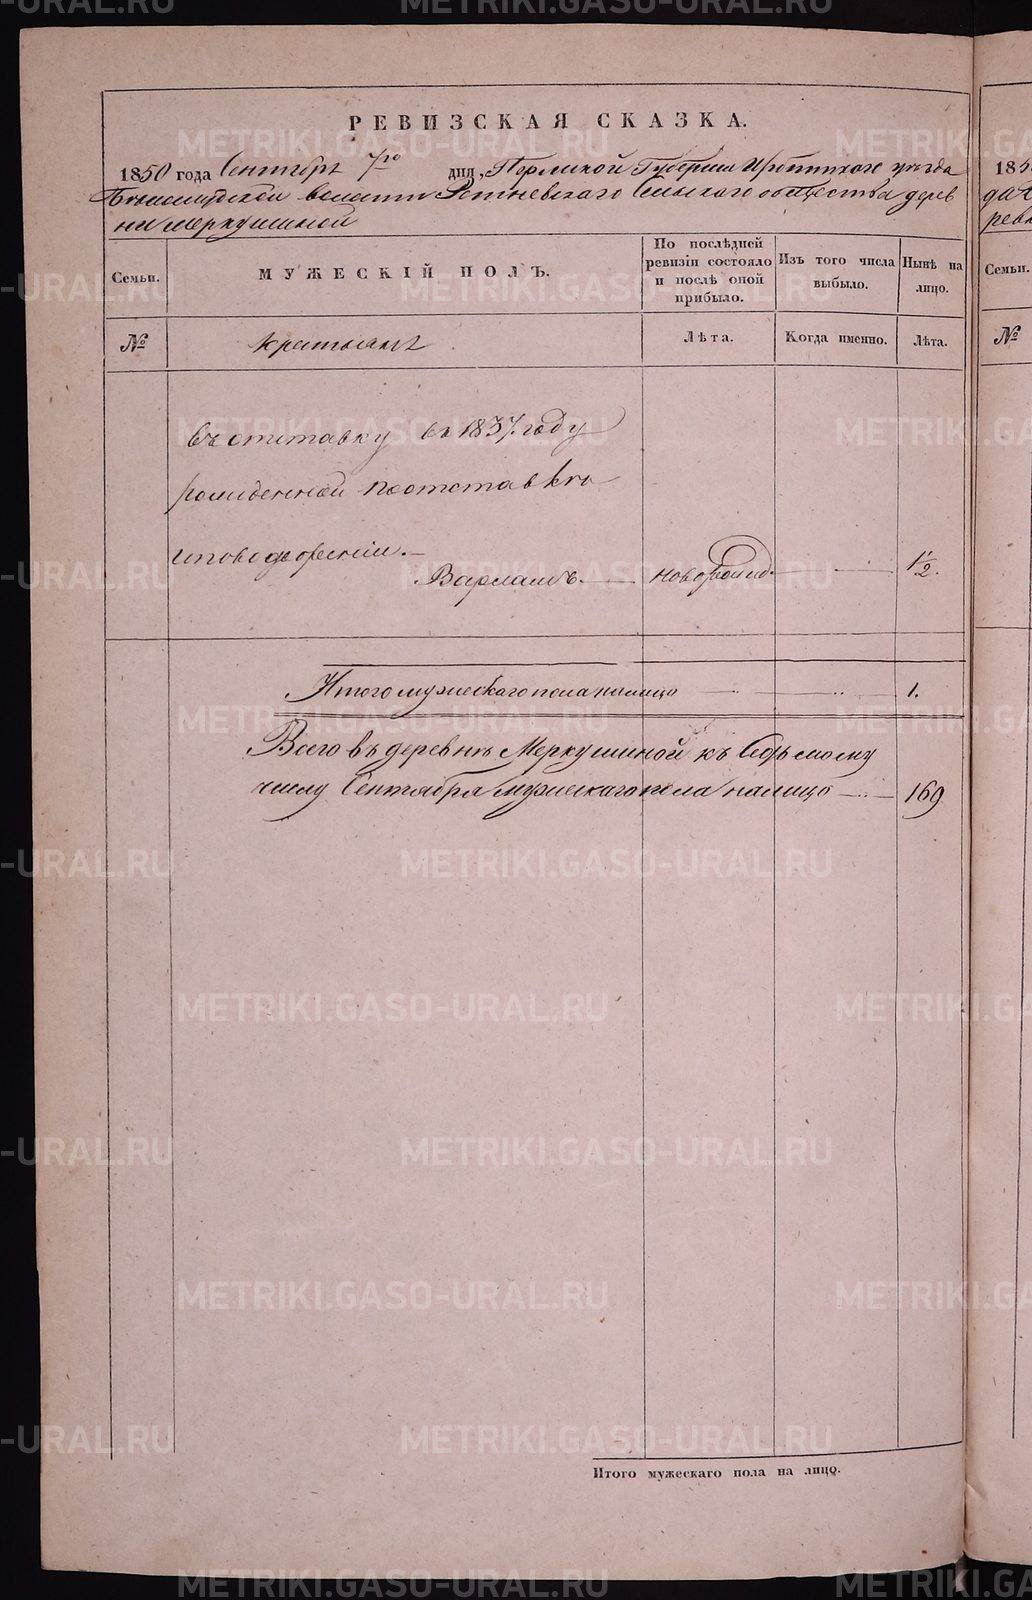 РЕВИЗСКАЯ СКАЗКА.
1850 года Сентября 7го дня, Пермской Губернiи Ирбитскаго уѣзда
волости Ретневскаго Сельскаго общества дерев
ни Меркушиной
Семьи.
МУЖЕСКІЙ ПОЛЪ.
По послѣдней ревизіи состояло и послѣ оной прибыло.
Изъ того числа выбыло.
Нынѣ на лицо.
№
Крестьянъ
Лѣта.
Когда именно.
Лѣта.
въ отставку въ 1837. году
рожденной поотставкѣ его
Варламъ новорожд. 1 1/2.
Итого мужескаго пола налицо 1.
Всего въ деревнѣ Меркушиной къ Седьмому
числу Сентября мужескаго пола налицо 169
Итого мужескаго пола на лицо.
185
Семьи.
№
METRIKI.GASO-URAL.RU